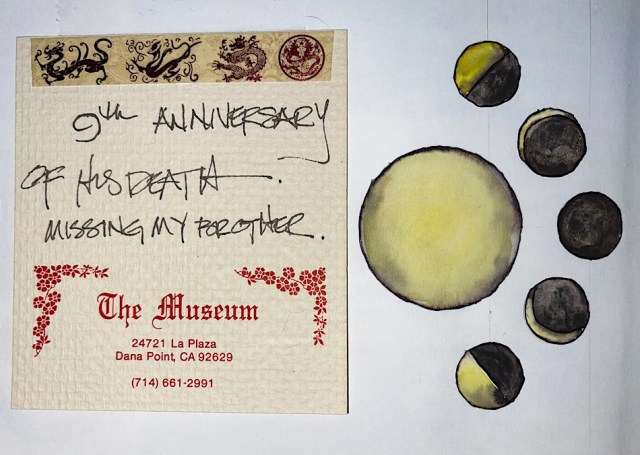 9th ANNIVERSARY
OF HIS DEATH.
MISSING MY BROTHER.
The Museum
24721 La Plaza
Dana Point, CA 92629
(714) 661-2991